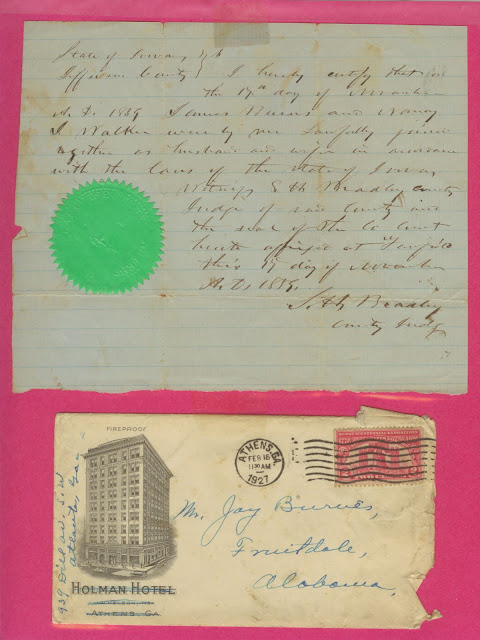 State of Iowa
Jefferson County I hereby certify that on
the 17th day of November
A. D. 1859 James Burns and Nancy
J. Walker were by me Lawfully joined
together as husband and wife in accordance
with the laws of the State of Iowa
Witness S. H. Bradley County
Judge of said County and
the seal of the Co Court
hereto affixed at
this 17 day of November
A. D. 1859.
S. H. Bradley
County Judge
FIREPROOF
ATHENS, GA.
FEB 16
11 30 AM
1927
Mr. Jay Burnes,
Fruitdale,
Alabama,
HOLMAN HOTEL
ATHENS, GA
939 Dill av. S.W
Atlanta, Ga.